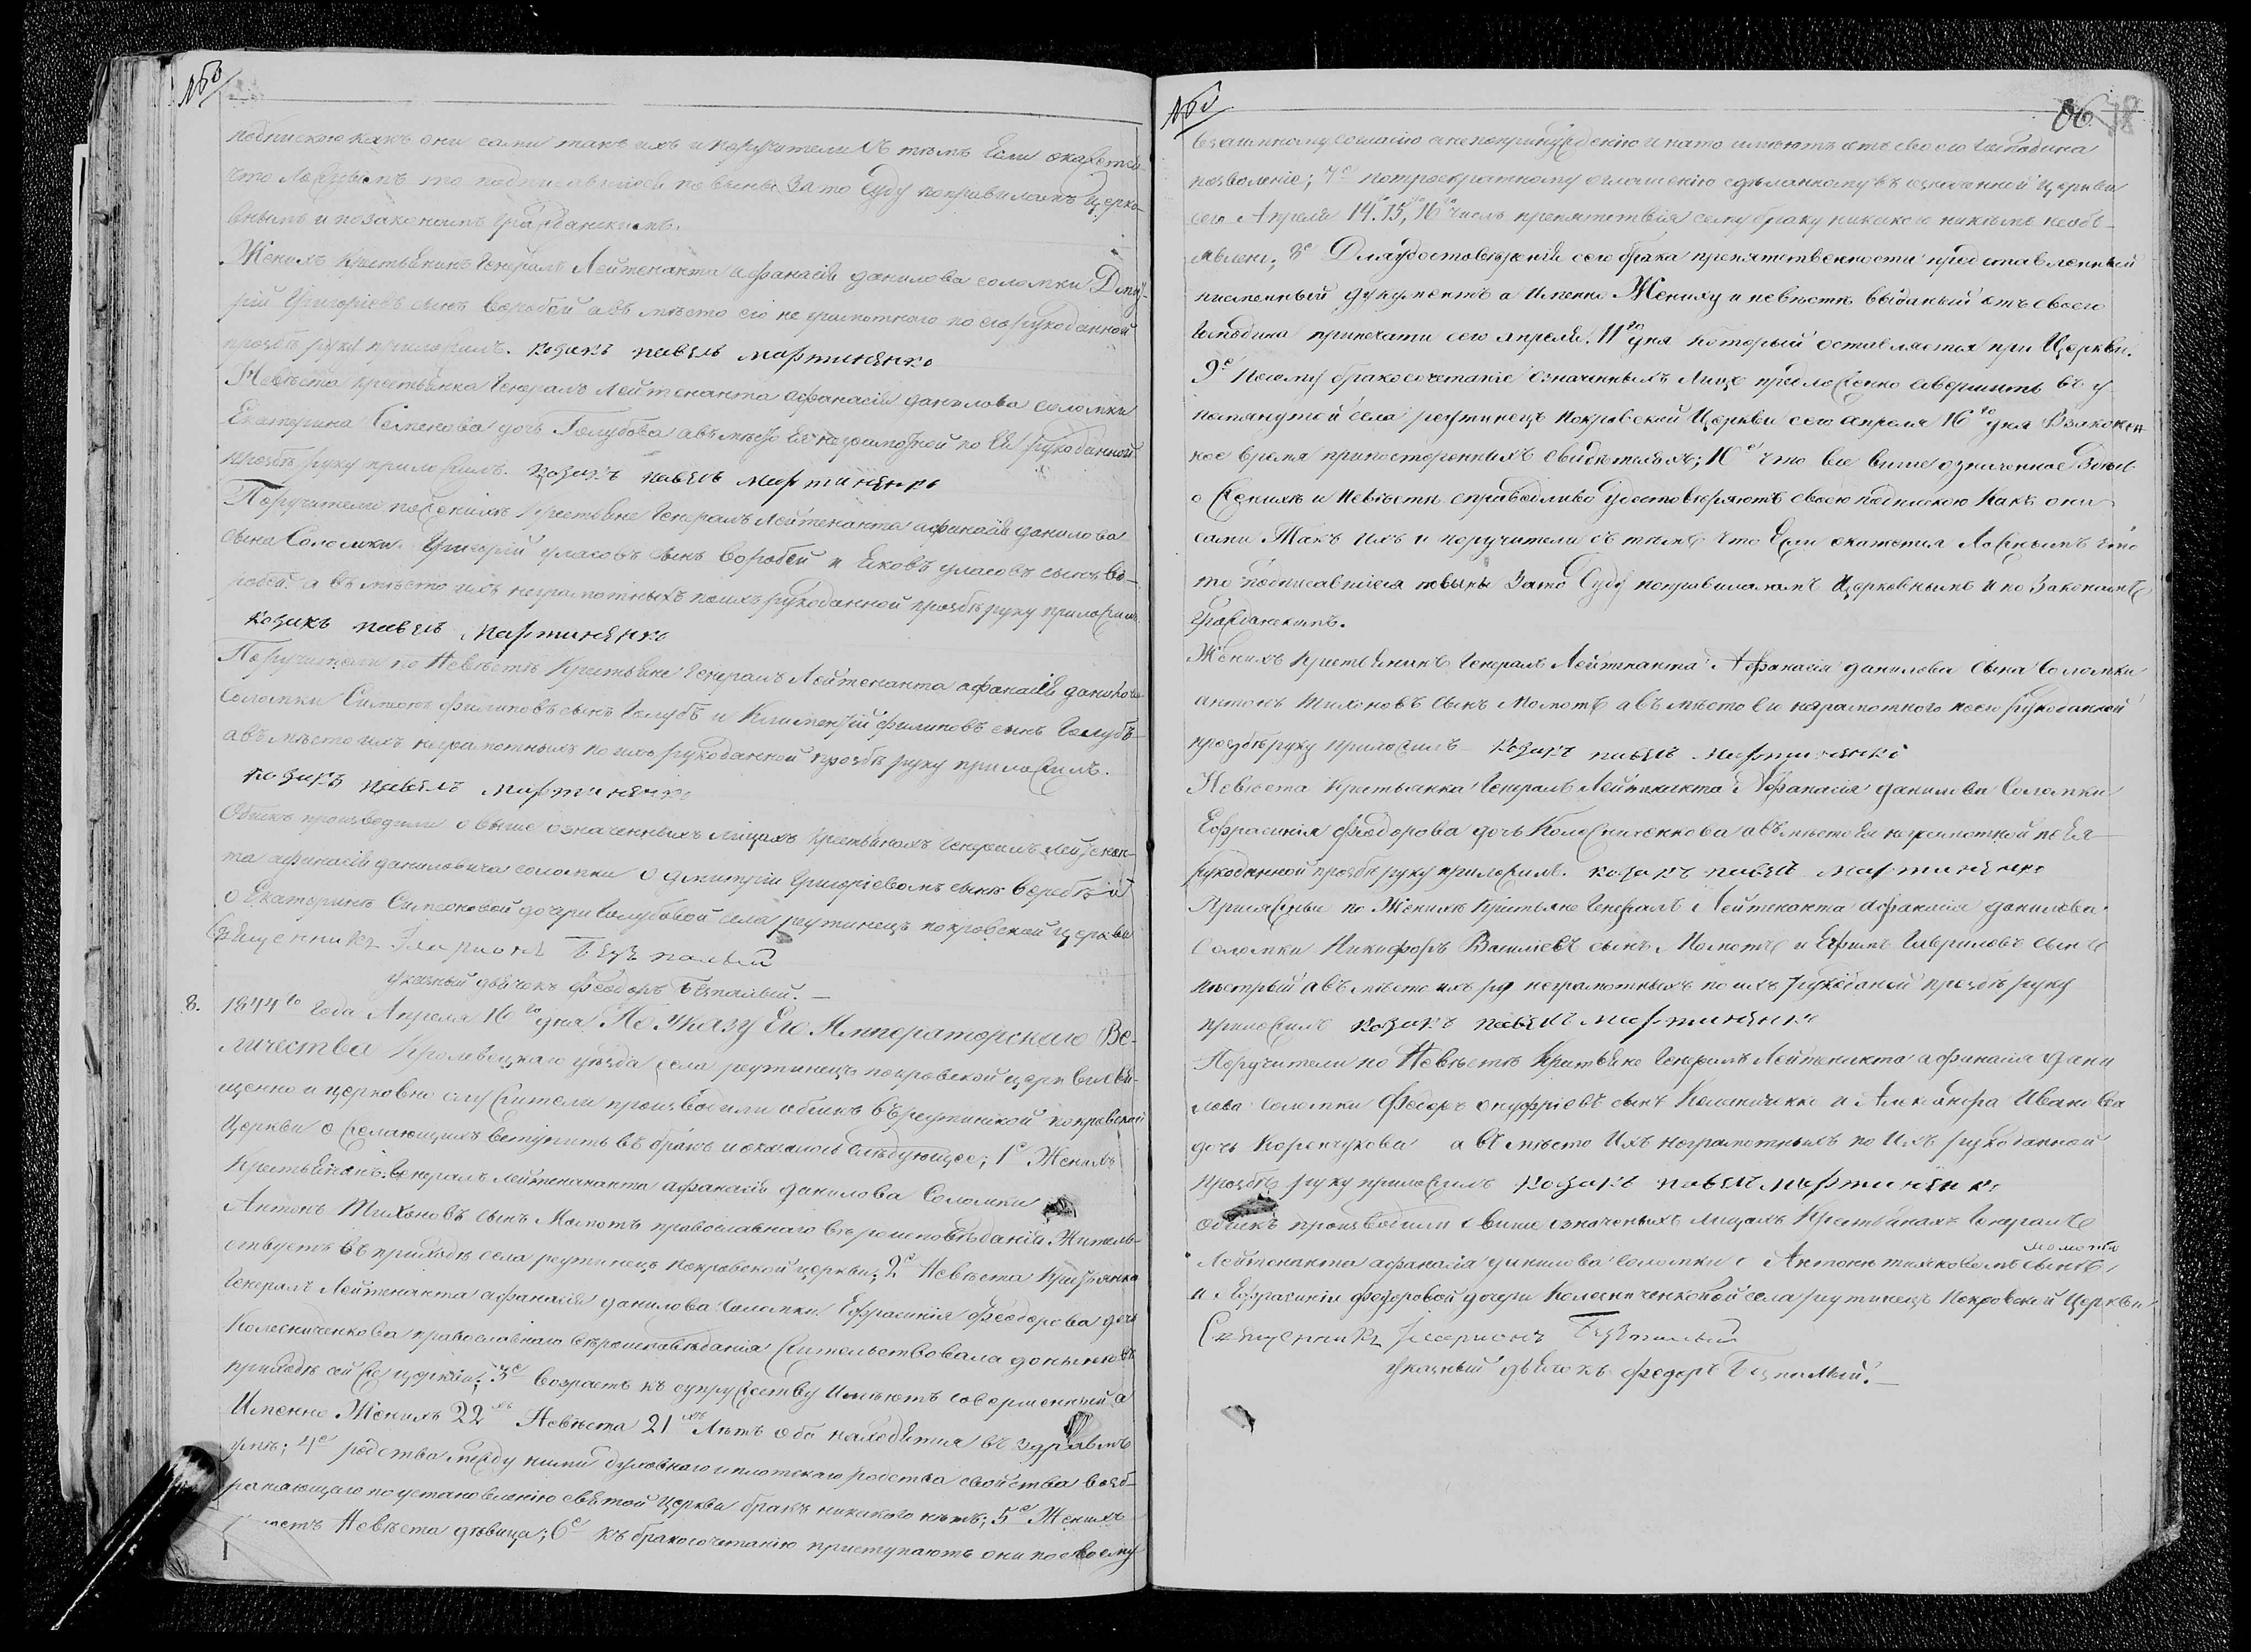 подпискою какъ они сами такъ ихъ и поручители съ тѣмъ Если окажется
что ложнымъ то подписавшіеся повинны за то Суду по правиламъ Церко-
внымъ и по законамъ Гражданскимъ.
Женихъ Крестьянинъ Генералъ Лейтенанта афанасія данилова соломки Дмит-
рій Григоріевъ сынъ Воробей а въ мѣсто его не грамотного по его рукоданной
прозбѣ руку приложилъ. козакъ павелъ мартиненко
Невѣста крестьянка Генералъ Лейтенанта афанасія данилова соломки
Екатерина Семенова дочь Голубова а въ мѣсто Ея не грамотной по Ея рукоданной
прозбѣ руку приложилъ. козакъ павелъ мартиненко
Поручители по женихѣ Крестьяне Генералъ Лейтенанта афанасія данилова
сына Соломки Григорій уласовъ сынъ Воробей и Яковъ уласовъ сынъ Во-
робей а въ мѣсто ихъ неграмотныхъ по ихъ рукоданной прозбѣ руку приложилъ
козакъ павелъ мартиненко
Поручители по Невѣстѣ Крестьяне Генералъ Лейтенанта афанасія данилова
соломки Симеонъ филиповъ сынъ Голубъ и Климентій филиповъ сынъ Голубъ
а въ мѣсто ихъ неграмотныхъ по ихъ рукоданной прозбѣ руку приложилъ.
козакъ павелъ мартиненко
Обыскъ производили о выше означенныхъ лицахъ крестьянахъ Генералъ Лейтенан-
та афанасія даниловича соломки о дмитріи Григоріевомъ сынѣ Воробьѣ и
о Екатеринѣ Симеоновой дочери Голубовой села реутинецъ покровской церкви
Священникъ Иларионъ Безпалый
указный дьячокъ Феодоръ Безпалый.
8. 1844го Года Апреля 16го дня По указу Его Императорскаго Ве-
личества Кролевецкаго уѣзда села реутинецъ покровской церкви свя-
щенно и церковно служители производили обыскъ въ реутинской покровской
Церкви о желающихъ вступить въ бракъ и оказалось слѣдующее; 1е Женихъ
Крестьянинъ Генералъ лейтенананта афанасія данилова Соломки
Антонъ Тихоновъ сынъ Момотъ православнаго вѣроисповѣданія Житель-
ствуетъ въ приходѣ села реутинецъ покровской церкви; 2е Невѣста Крестьянка
Генералъ Лейтенанта афанасія данилова Соломки Ефросинія Феодорова дочь
Колесниченкова православнаго вѣроисповѣданія Жительствовала донынѣ въ
приходѣ сей же церкви; 3е Возрастъ къ супружеству Имѣютъ совершенный а
Именно Женихъ 22хъ Невѣста 21 Лѣтъ оба находятся въ здравомъ
умѣ; 4е родства между ними духовнаго и плотскаго родства свойства возб-
раняющаго по установленію святой Церкви бракъ никакого нѣтъ; 5е Женихъ
Невѣста дѣвица; 6е къ бракосочетанію приступаютъ они по своему
взаимному согласію а не по принужденію и на то имѣютъ отъ своего Господина
позволеніе; 7е по троекратному оглашенію сдѣланному въ означенной церкви
сего Апреля 14. 15, 16го числъ препятствія сему браку никакого никѣмъ необъ-
явлено; 8е Для удостовѣренія сего брака препятственности представленный
писменный документъ а Именно Жениху и невѣстѣ выданый отъ своего
Господина при печати сего апреля 11го дня который оставляется при Церкви.
9е посему бракосочетаніе означенныхъ Лицъ предложено совершить въ у-
помянутой села реутинецъ покровской Церкви сего апреля 16го дня Взакон-
ное время при постороннихъ свидѣтеляхъ; 10е что все више означенное
о Женихѣ и Невѣсти справедливо удостовѣряютъ своею подпискою Какъ они
сами Такъ ихъ и поручители съ тѣмъ что Если окажется Ложнымъ что
то подписавшіеся повины Зато Суду по правиламъ Церковнымъ и по Законамъ
Гражданскимъ.
Женихъ Крестьянинъ Генералъ Лейтенанта Афанасія данилова сына Соломки
антонъ Тихоновъ сынъ Момотъ а въ мѣсто Его неграмотного по его рукоданной
прозбѣ руку приложилъ козакъ павелъ мартиненко
Невѣста Крестьянка Генералъ Лейтенанта Афанасія данилова Соломки
Ефросинія Феодорова дочь Колесниченкова а въ мѣсто Ея неграмотной по Ея
рукоданной прозбѣ руку приложилъ. козакъ павелъ мартиненко
по Женихѣ Крестьяне Генералъ Лейтенанта афанасія данилова
Соломки Никифоръ Василіевъ сынъ Момотъ и Ефимъ Гавриловъ сынъ
а въ мѣсто ихъ неграмотныхъ по ихъ рукоданой прозбѣ руку
приложилъ козакъ павелъ мартиненко
Поручители по Невѣстѣ Крестьяне Генералъ Лейтенанта афанасія дани
лова соломки Федоръ онуфріевъ сынъ и Александра Иванова
дочь а въ мѣсто Ихъ неграмотныхъ по Ихъ рукоданной
прозбѣ руку приложилъ козакъ павелъ мартиненко
обискъ производили о више означеныхъ лицахъ Крестьянахъ Генералъ
момоть
Лейтенанта афанасія данилова соломки о Антонѣ тихоновомъ сынѣ
и Ефросиніи федоровой дочери Колесниченковой села реутинецъ Покровской Церкви
Священникъ Иларионъ Безпалый
указный дьячокъ федоръ Безпалый.